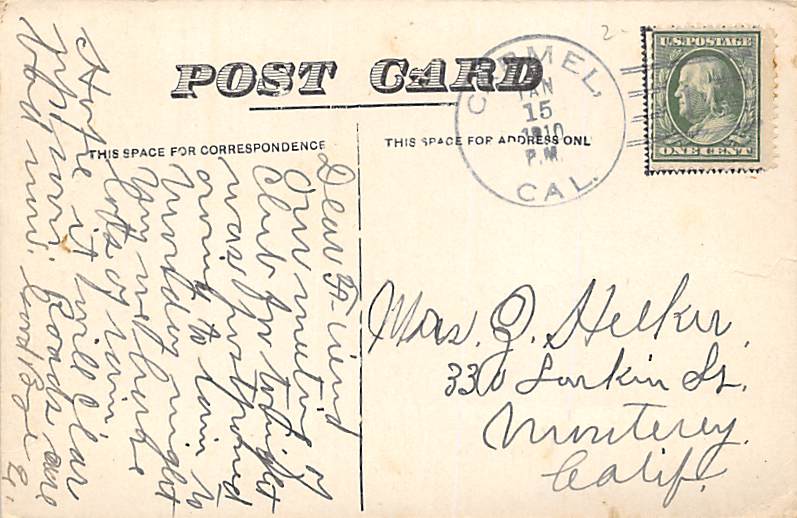 POST CARD
THIS SPACE FOR CORRESPONDENCE
THIS SPACE FOR ADDRESS ONL
CARMEL,
JAN
15
1910
P.M.
CAL.
U.S. POSTAGE
ONE CENT
Dear Friend
Our meeting of
Club for tonight
was postponed
owing to rain to
Monday night
Very wet here
lots of rain
Hope it will clear
up soon. Roads are
bad now.
Mrs. J. Helker,
330 Larkin St.
Monterey,
Calif.